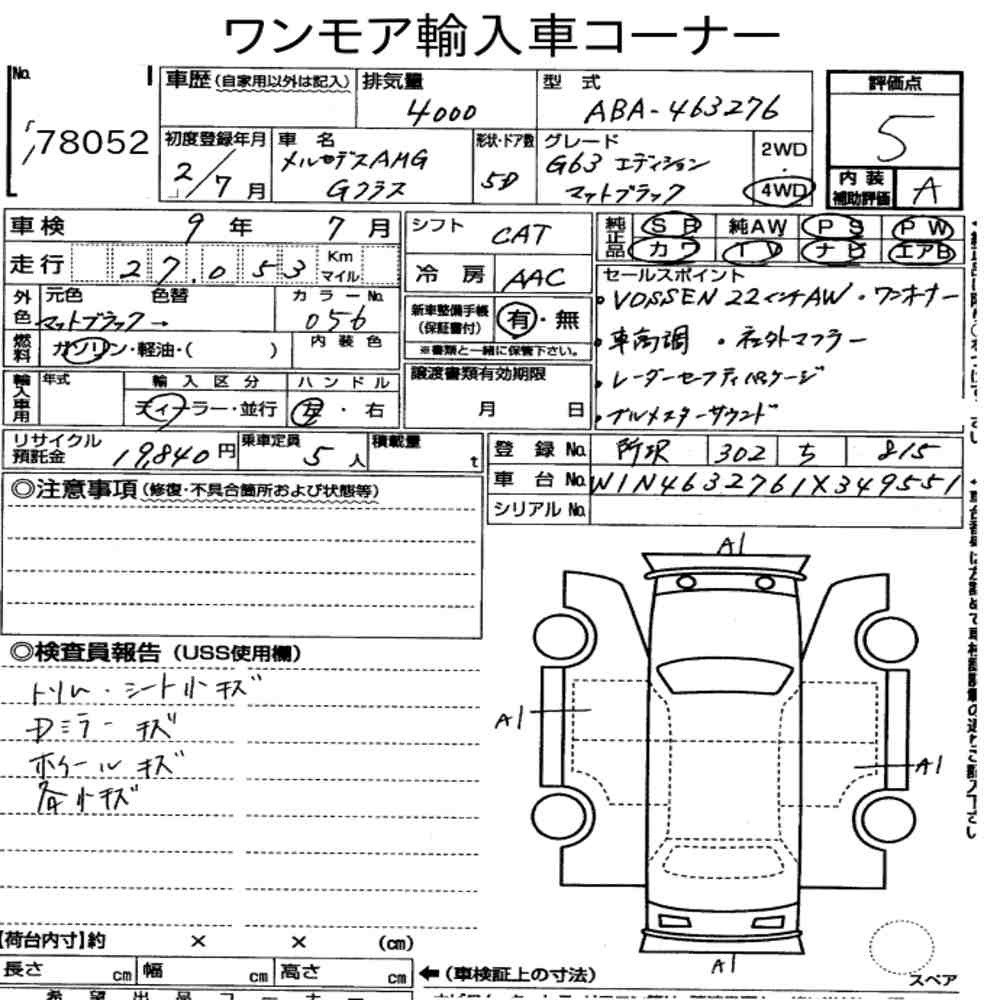 ワンモア輸入車コーナー
No. 78052
車歴(自家用以外は記入) 排気量 4000 型式 ABA-463276 評価点 5
初度登録年月 2/7月 車名 メルセデスAMG Gクラス 形状・ドア数 5D グレード G63 エディション マットブラック 2WD 4WD
内装補助評価 A
車検 9年 7月
シフト CAT
純正品 SR 純AW PS PW
カワ TV ナビ エアB
走行 27.053 Km マイル
冷房 AAC
セールスポイント
・VOSSEN 22インチAW ・ワンオーナー
・車高調 ・社外マフラー
・レーダーセーフティパッケージ
・ブルメスターサウンド
外色 元色 色替 マットブラック→ カラーNo. 056
新車整備手帳(保証書付) 有・無
※書類と一緒に保管下さい。
燃料 ガソリン・軽油・( ) 内装色
譲渡書類有効期限 月 日
輸入車用 年式 輸入区分 ディーラー・並行 ハンドル 左・右
リサイクル預託金 19,840円 乗車定員 5人 積載量 t
登録No. 所沢 302 ち 815
車台No. W1N4632761X349551
シリアルNo.
◎注意事項(修復・不具合箇所および状態等)
◎検査員報告(USS使用欄)
トリム・シート小キズ
Dミラーキズ
ホイールキズ
各小キズ
A1
A1
A1
A1
スペア
【荷台内寸】約 × × (cm)
長さ cm 幅 cm 高さ cm
←(車検証上の寸法)
希望出品コーナー